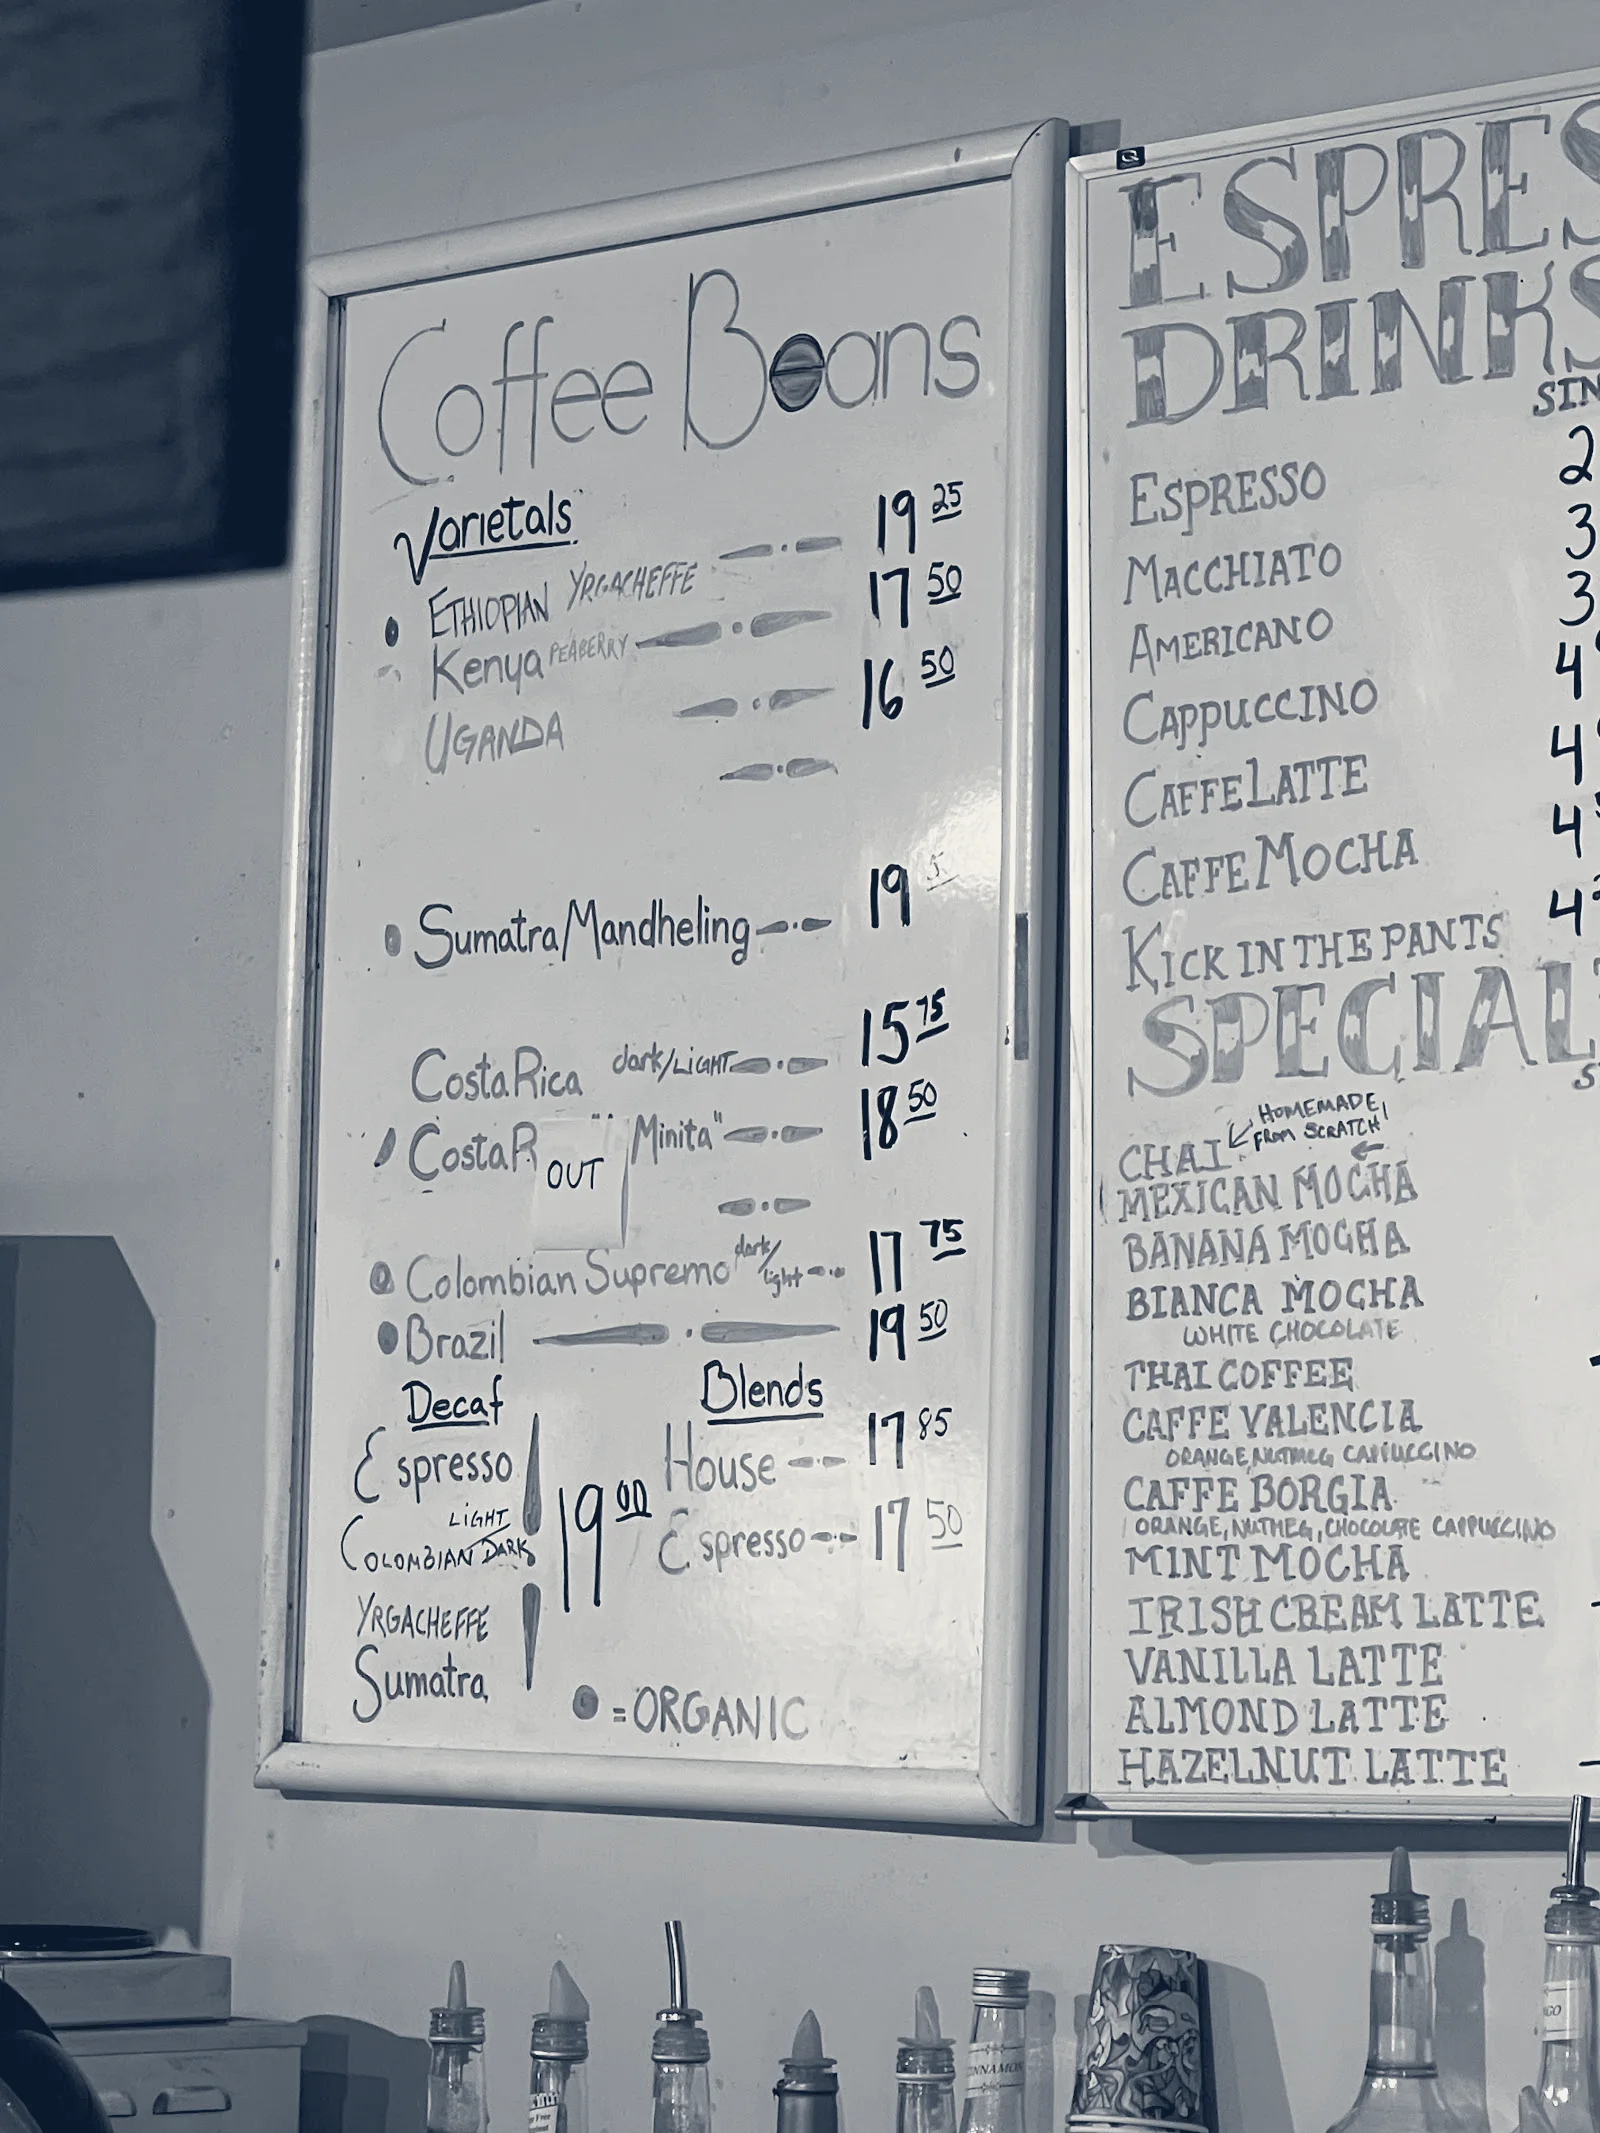 Coffee Beans
Varietals
ETHIOPIAN YRGACHEFFE 19 25
Kenya PEABERRY 17 50
UGANDA 16 50
Sumatra Mandheling 19
Costa Rica dark/LIGHT 15 75
Costa R OUT "Minita" 18 50
Colombian Supremo dark/light 17 75
Brazil 19 50
Decaf
Espresso
LIGHT
COLOMBIAN DARK
YRGACHEFFE
Sumatra
19 00
Blends
House 17 85
Espresso 17 50
= ORGANIC
ESPRES
DRINKS
SIN
ESPRESSO 2
MACCHIATO 3
AMERICANO 3
CAPPUCCINO 4
CAFFE LATTE 4
CAFFE MOCHA 4
KICK IN THE PANTS 4
SPECIAL
CHAI HOMEMADE FROM SCRATCH!
MEXICAN MOCHA
BANANA MOCHA
BIANCA MOCHA
WHITE CHOCOLATE
THAI COFFEE
CAFFE VALENCIA
ORANGE, NUTMEG CAPPUCCINO
CAFFE BORGIA
ORANGE, NUTMEG, CHOCOLATE CAPPUCCINO
MINT MOCHA
IRISH CREAM LATTE
VANILLA LATTE
ALMOND LATTE
HAZELNUT LATTE